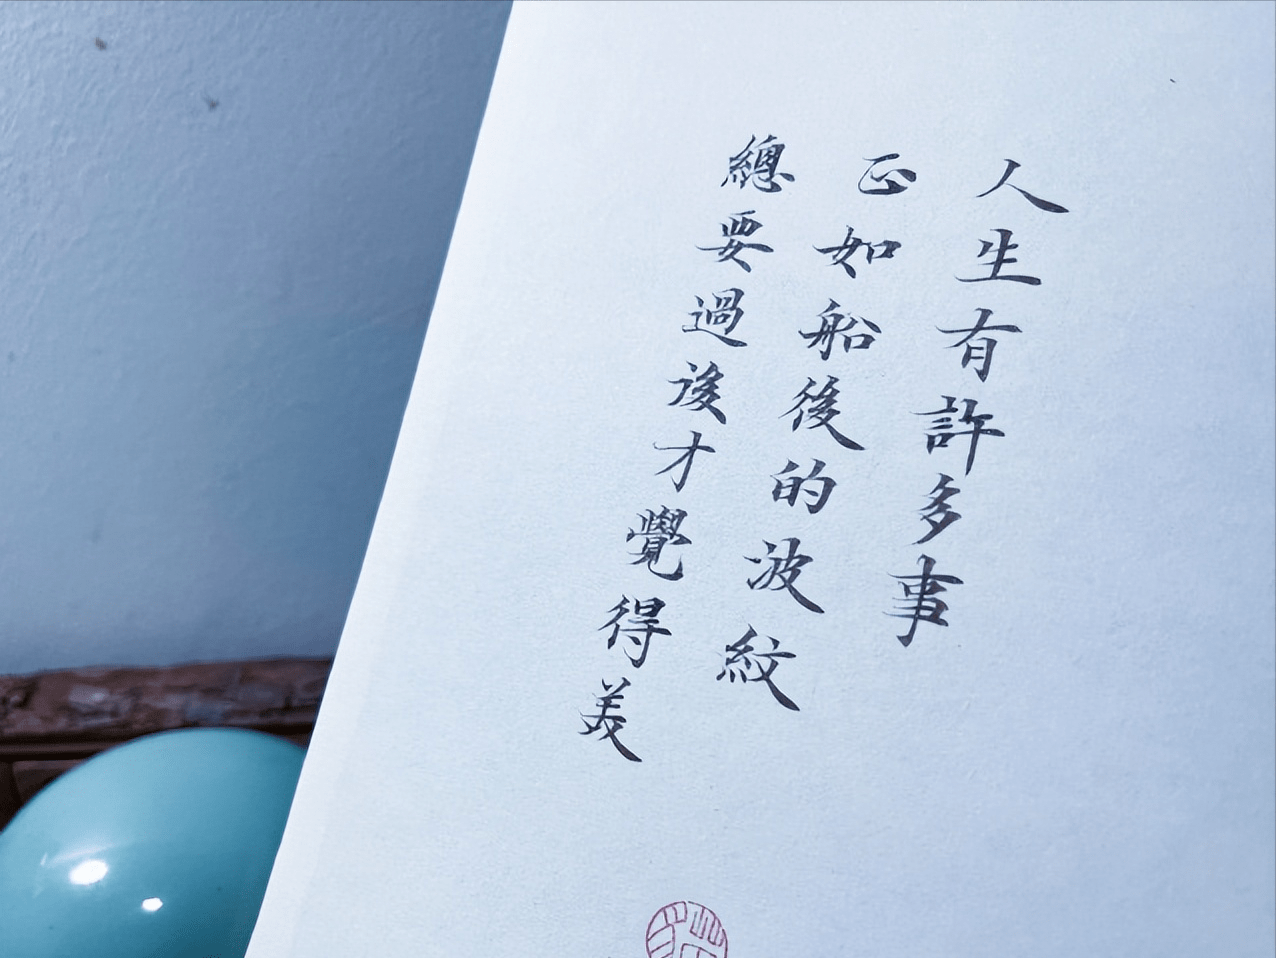 人生有許多事
正如船後的波紋
總要過後才覺得美